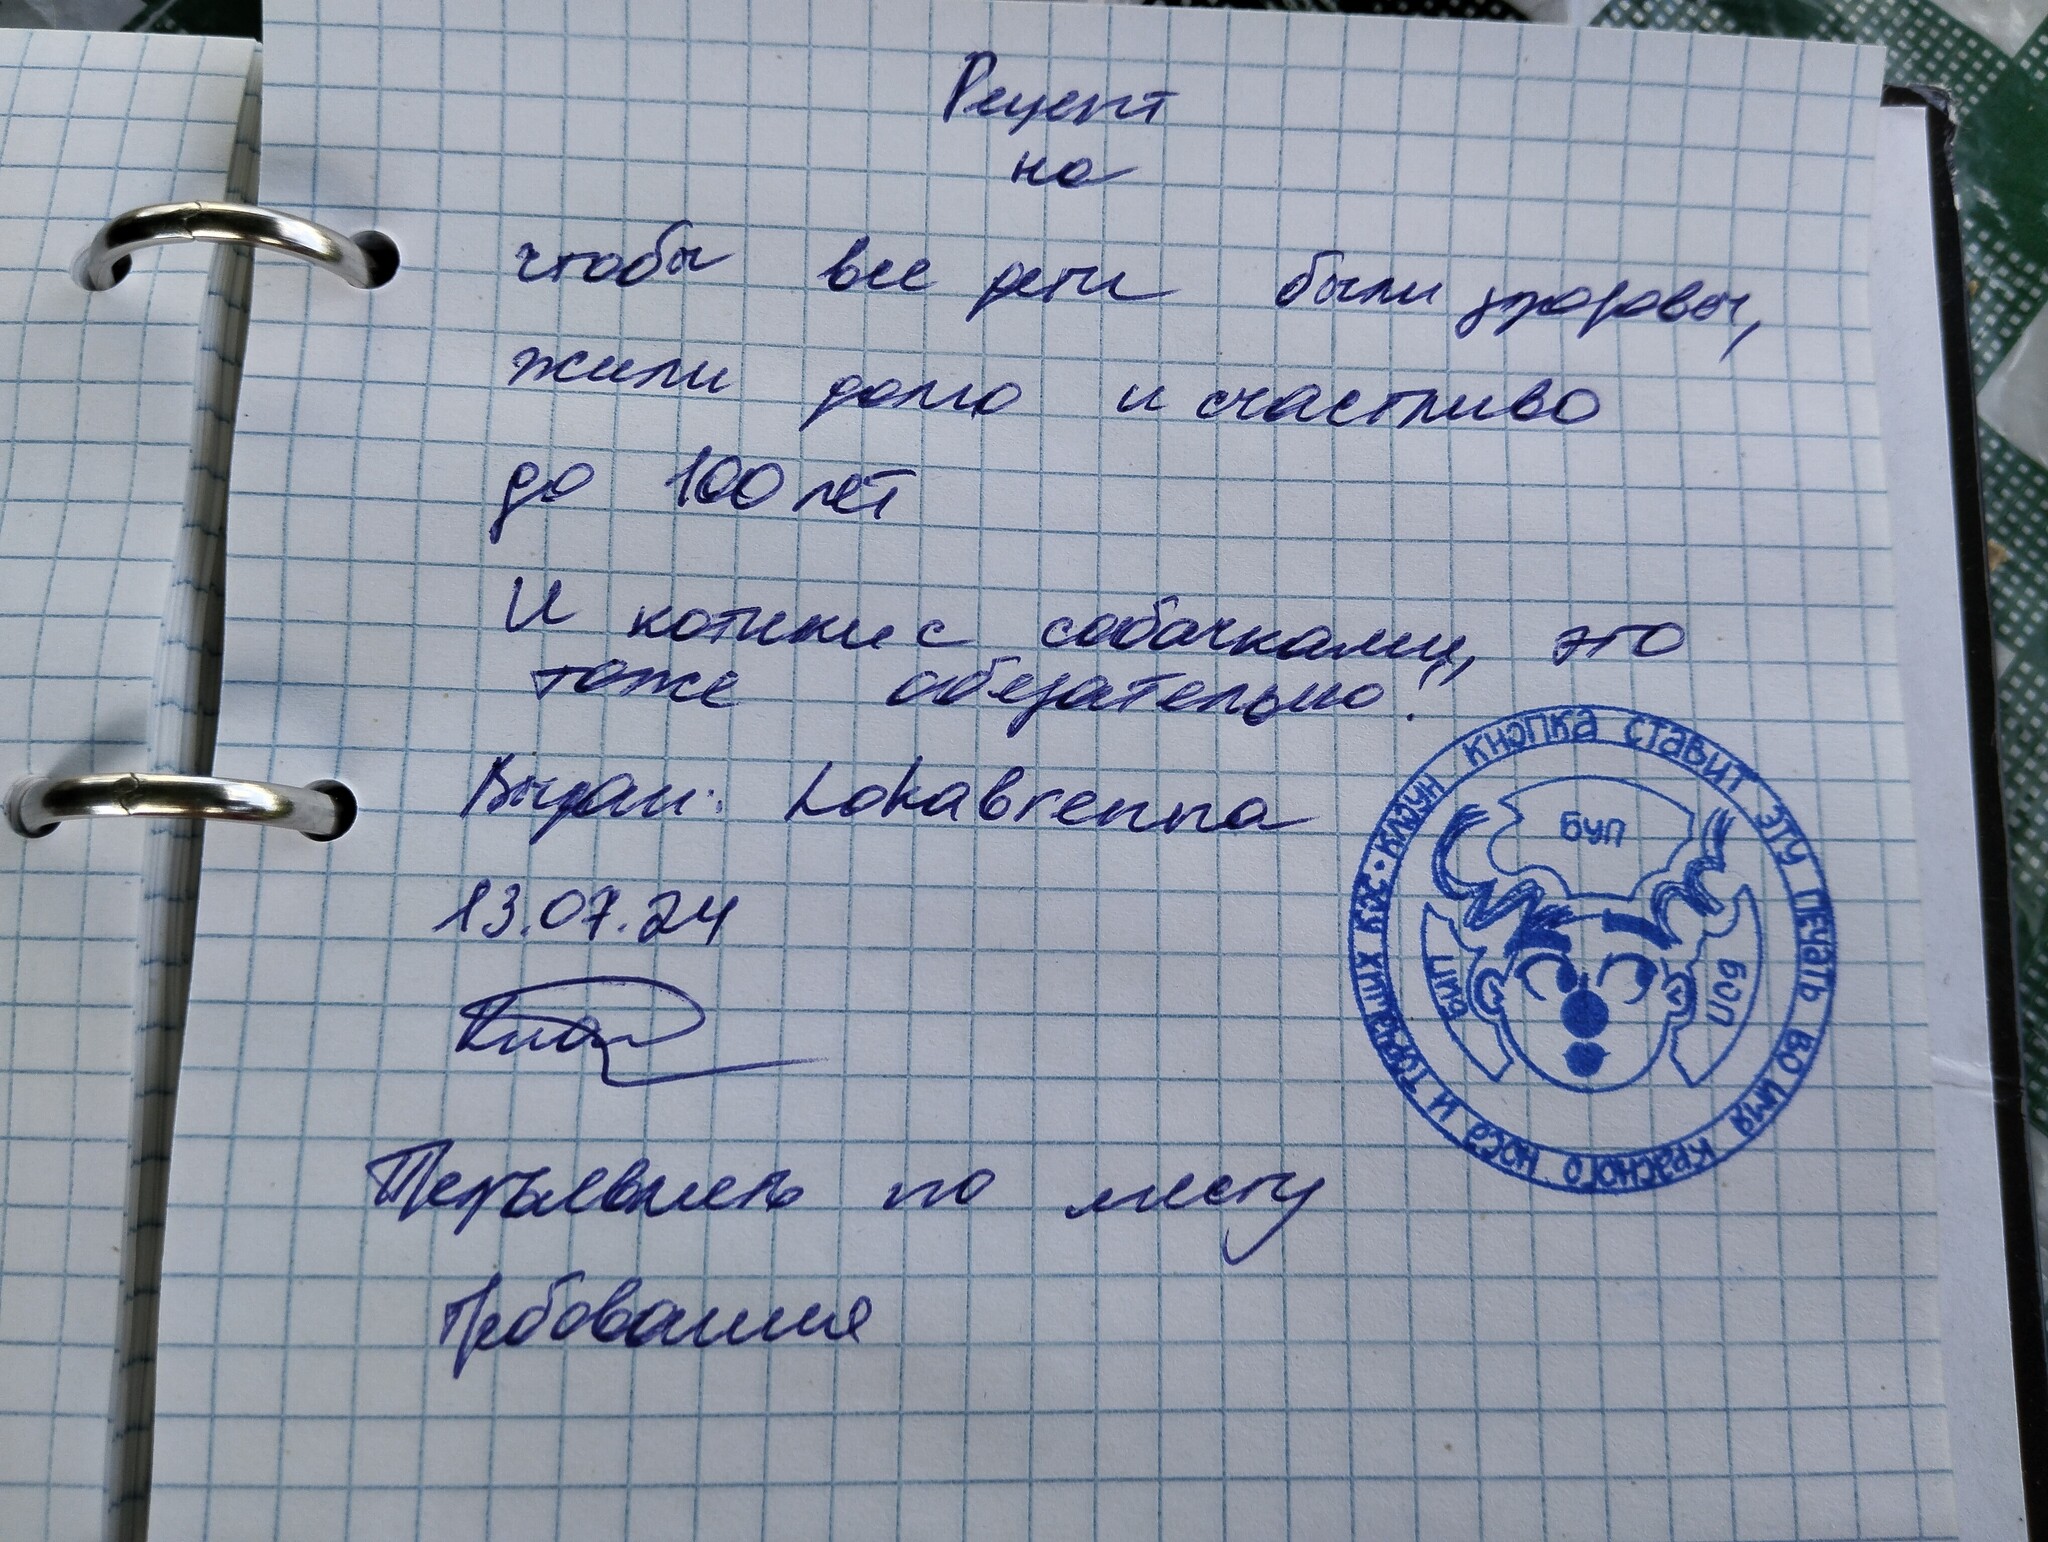 Рецепт
на
чтобы все дети были здоровы,
жили долго и счастливо
до 100 лет
И котики с собачками, это
тоже обезательно!
Выдан: Lokabrenna
13.07.24
по месту
требования
КЛОУН КНОПКА СТАВИТ ЭТУ ПЕЧАТЬ ВО ИМЯ КРАСНОГО НОСА И ТОРЧАЩИХ КОС •
БУП
БИП
БОП